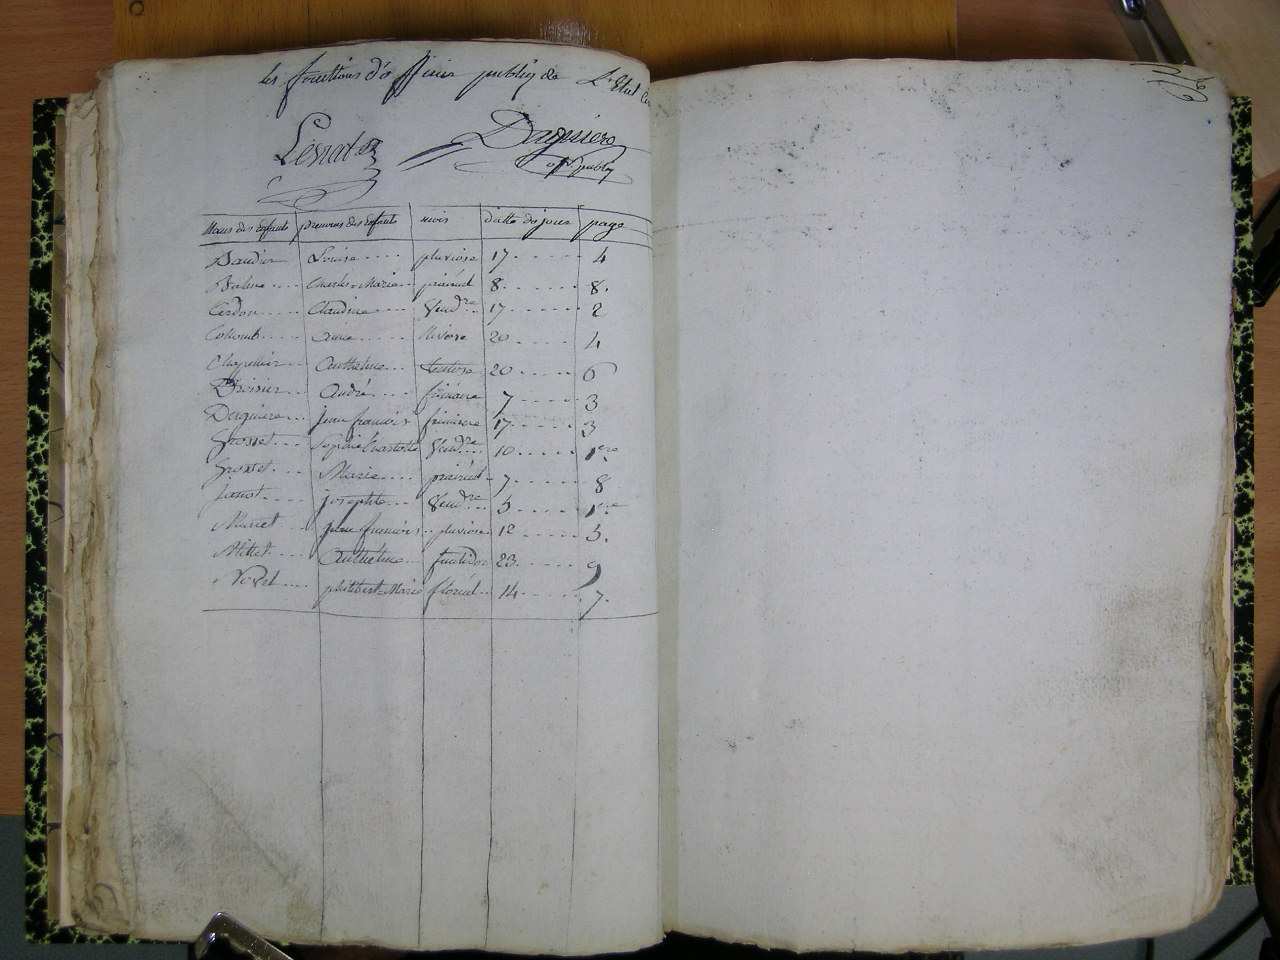 les fonctions d'officier public de L'Etat
Lesnat Dugniere
off. public
Noms des Enfants prenoms des Enfants mois datte des jours page
Baudin Louise pluviose 17 4
Balme Charles Marie prairial 8 8.
Cerdon Claudine Vend.re 17 2
Collomb anne Nivose 20 4
Chapellier anthelme ventose 20 6
Droisier André frimaire 7 3
Dugniere jean francois frimaire 17 3
Grosset Sophie Vend.re 10 1ere
Grosset Marie prairial 7 8
josephte Vend.re 5 1ere
jean francois pluviose 12 5.
Millet anthelme fructidor 23 9
philibert Marie floréal 14 7.